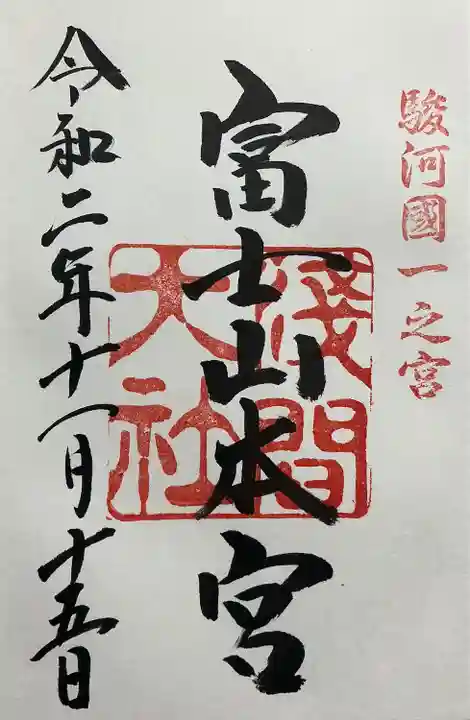 駿河國一之宮
富士山本宮
淺間
大社
令和二年十一月十五日